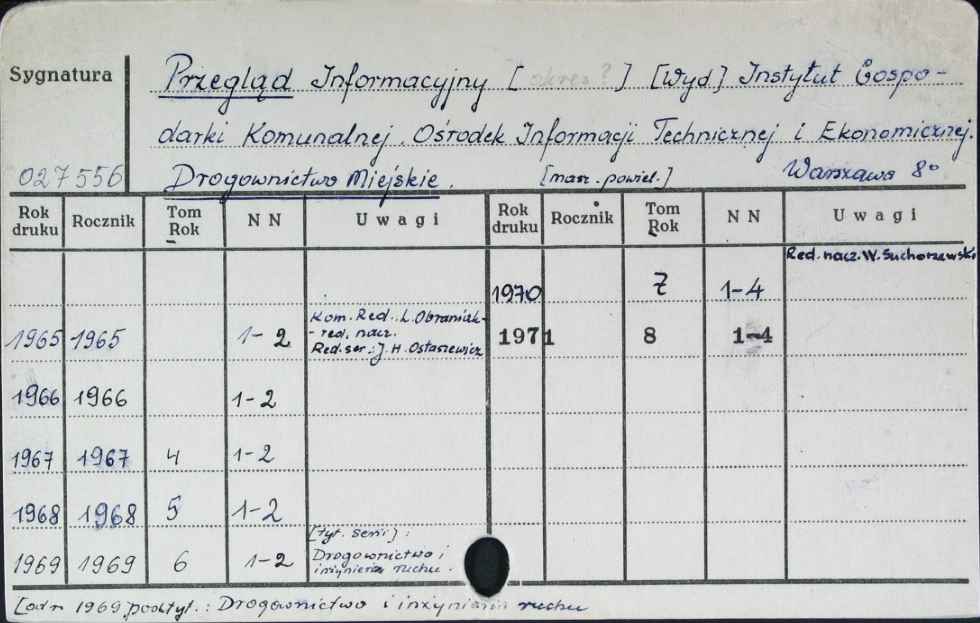 Sygnatura
Przegląd Informacyjny [ okres? ] [Wyd] Instytut Gospo-
darki Komunalnej. Ośrodek Informacji Technicznej i Ekonomicznej.
027556 Drogownictwo Miejskie. [masz. powiel.] Warszawa 8º
Rok druku Rocznik Tom Rok N N Uwagi Rok druku Rocznik Tom Rok N N Uwagi
Red. nacz. W. Suchorzewski
1970 7 1-4
1965 1965 1-2 Kom. Red.: L. Obraniak-
- red. nacz.
Red. ser.: J. H. Ostasiewicz
1971 8 1-4
1966 1966 1-2
1967 1967 4 1-2
1968 1968 5 1-2
1969 1969 6 1-2 [tyt. serii]:
Drogownictwo i
inżynieria ruchu.
[od r. 1969 podtyt.: Drogownictwo i inżynieria ruchu